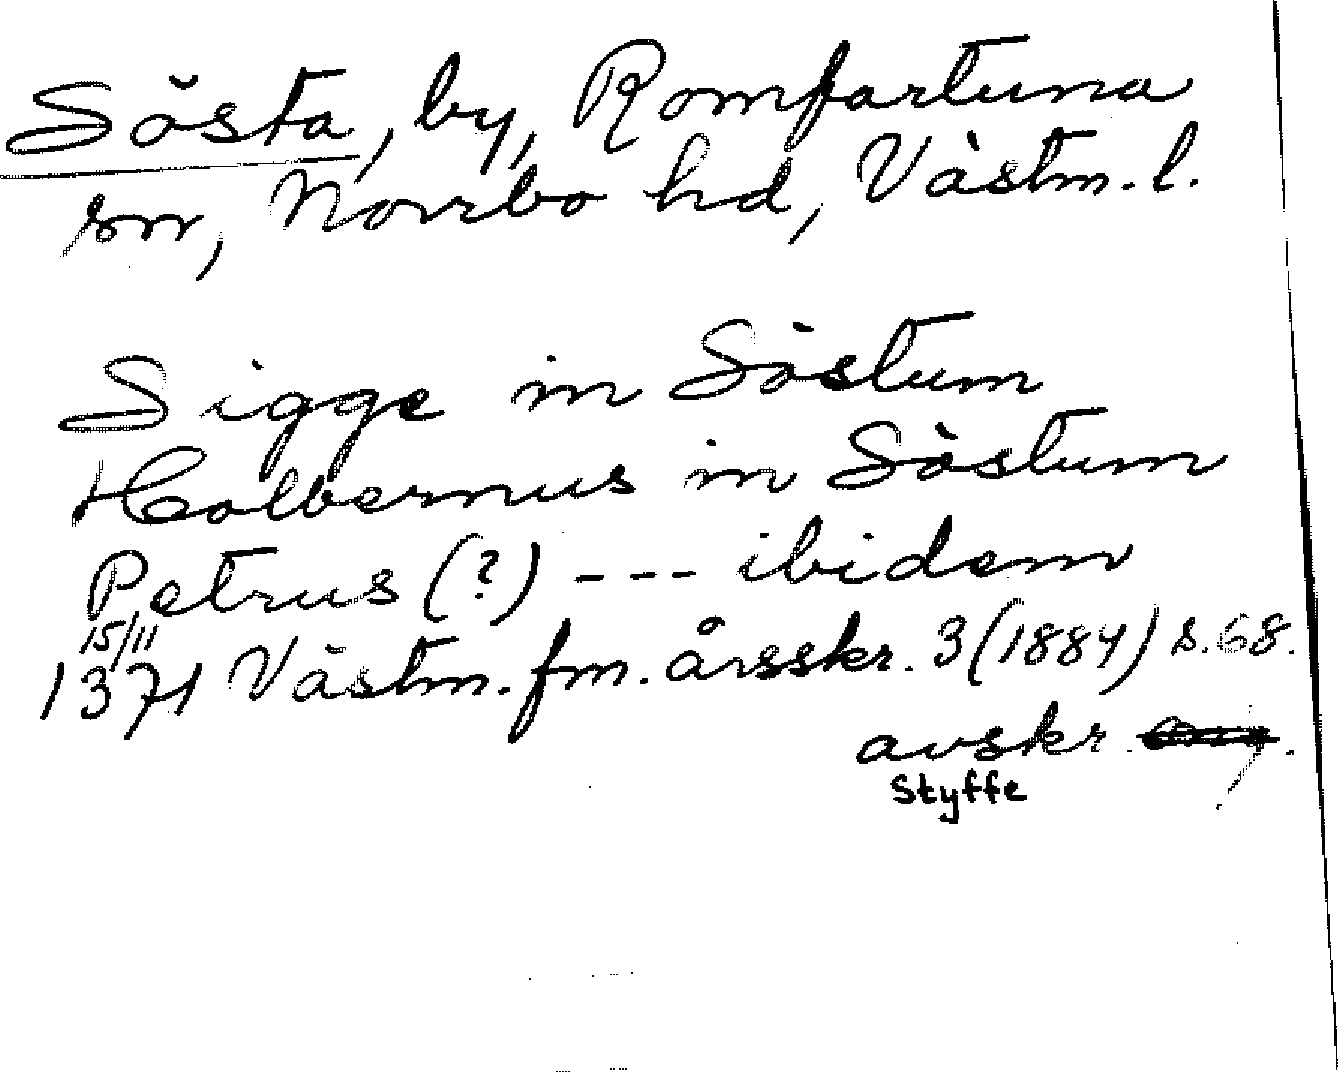 Sösta, by, Romfartuna
sn, Norrbo hd, Västm. l.
Sigge in Söstum
Holbernus in Söstum
Petrus (?) --- ibidem
15/11
1371 Västm. fm. årsskr. 3 (1884) s. 68.
avskr.
Styffe